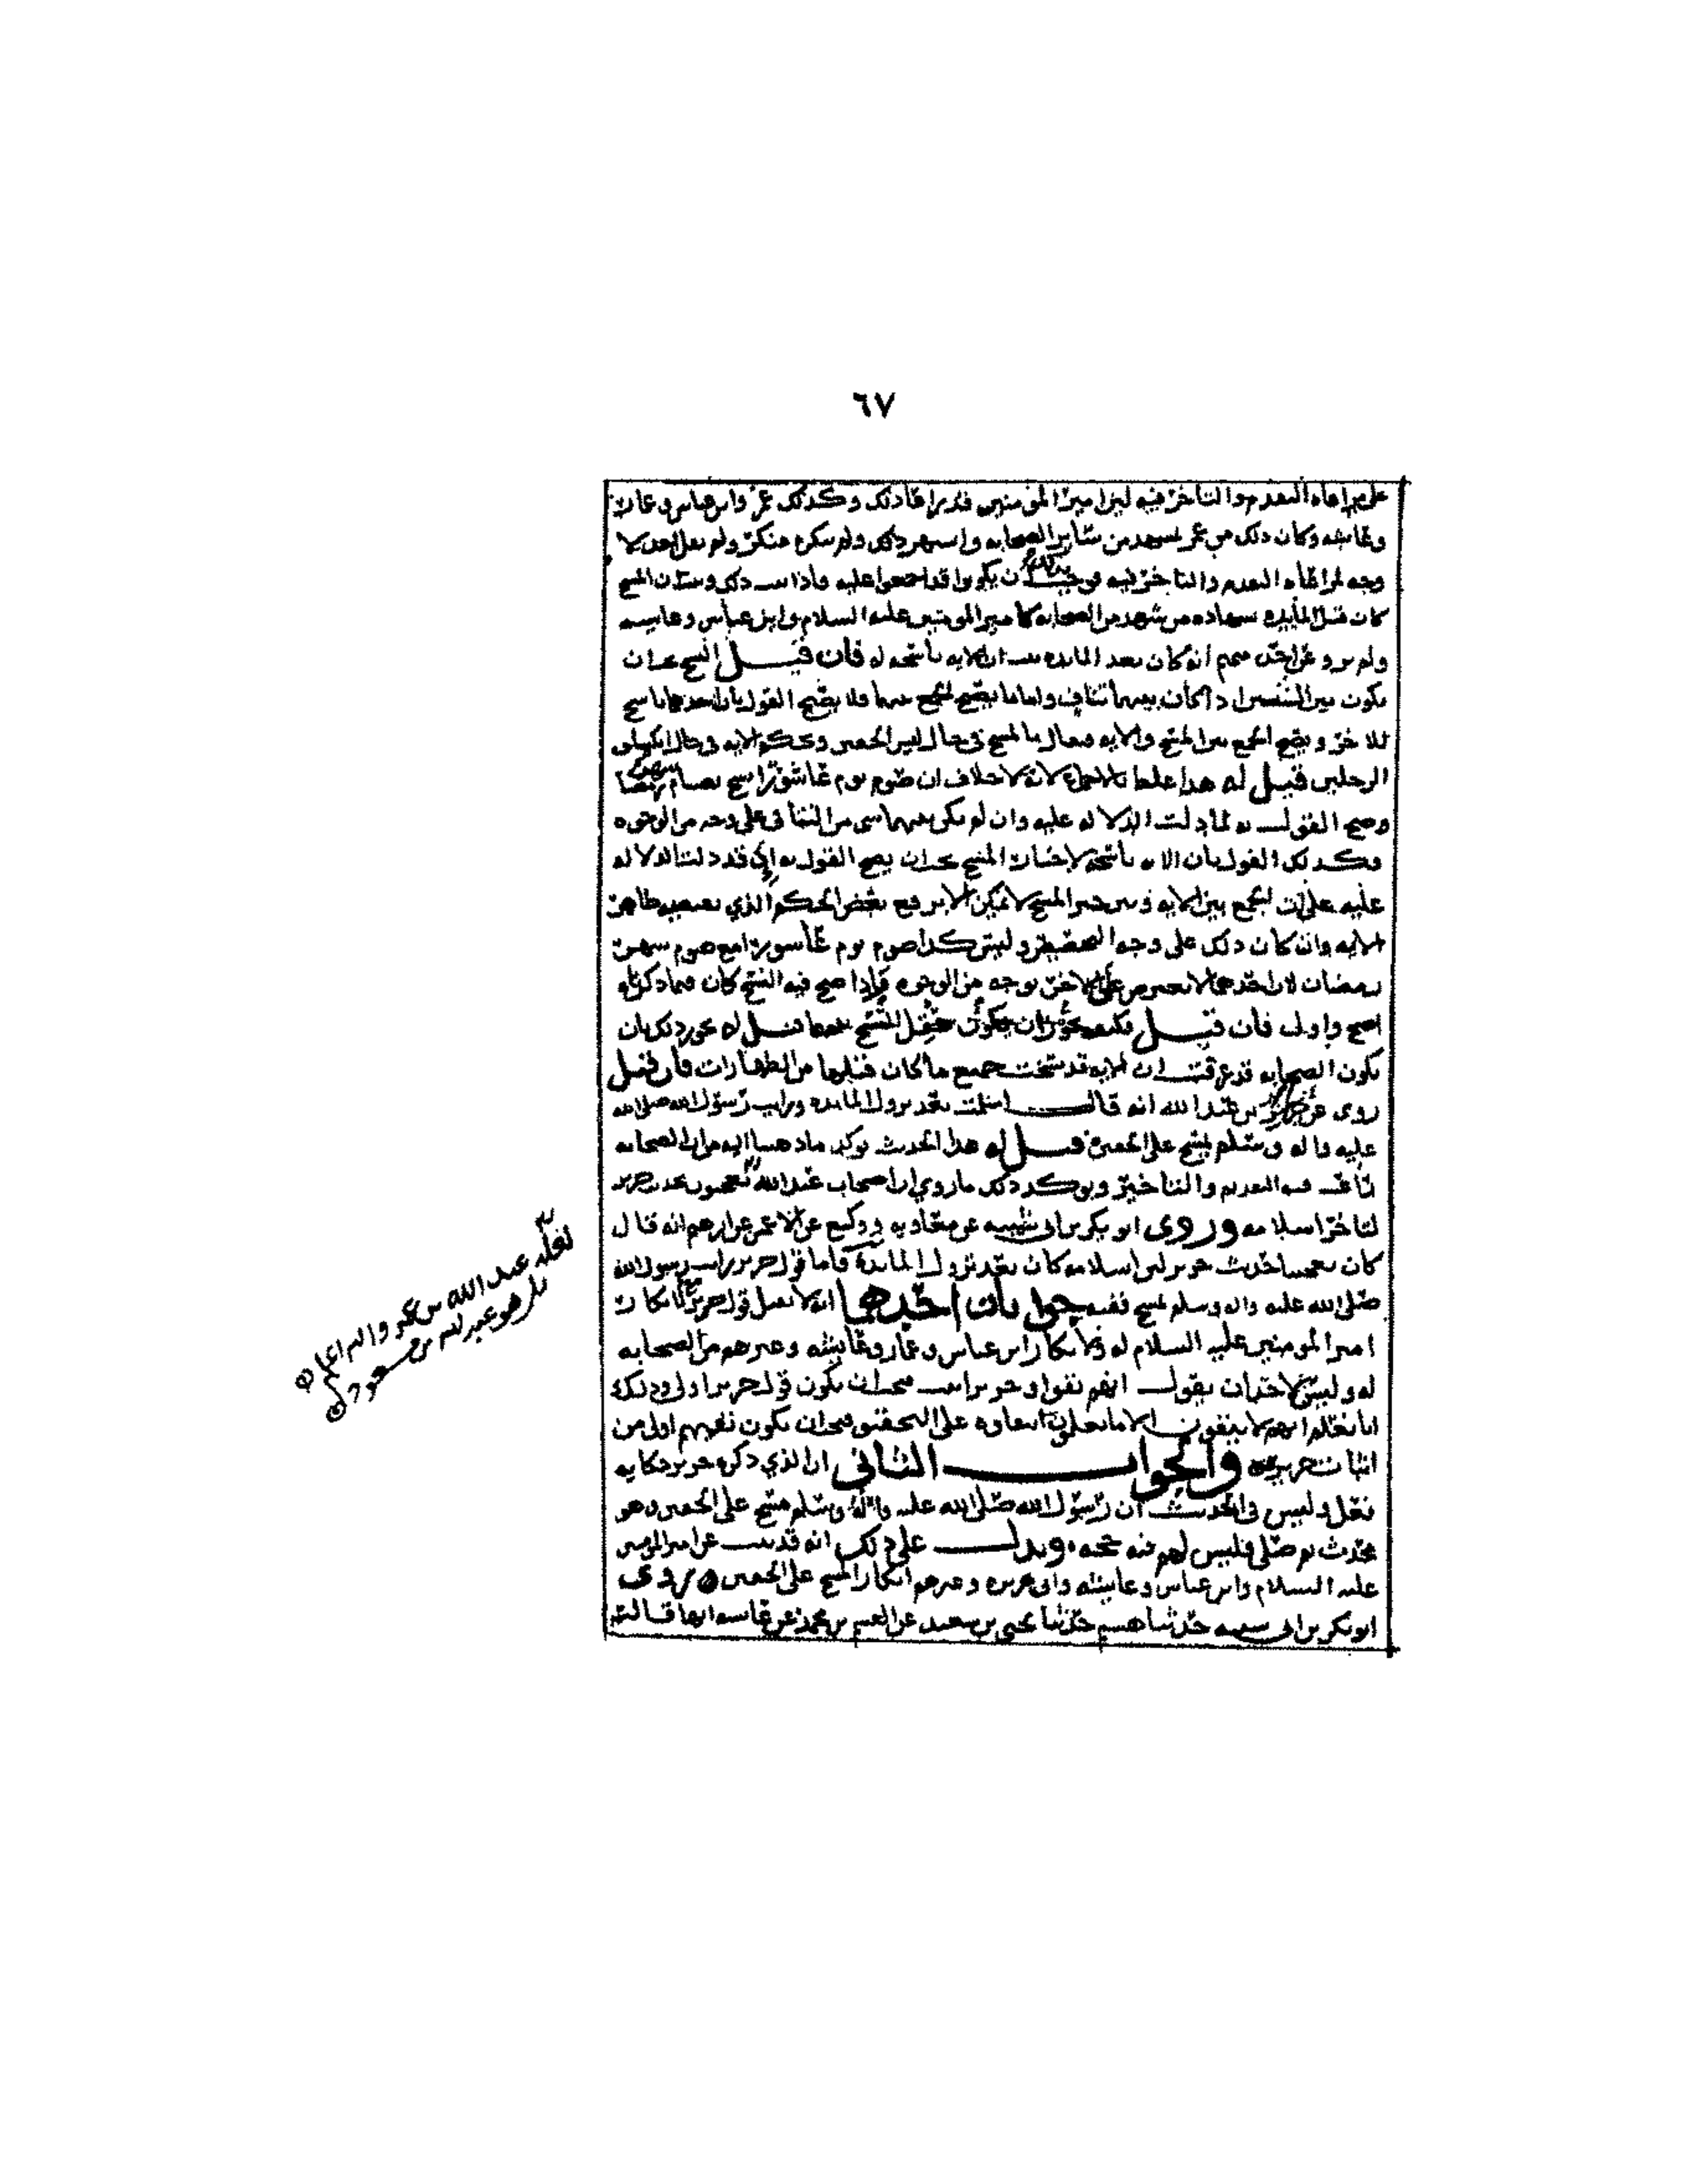 ٦٧
على مراعاه التعدم والتاخر فيه لان امير المومنين قد راعا ذلك وكذلك عمر وابن عباس وعمار
وعايشه وكان ذلك من عمر بمشهد من ساير الصحابه واشتهر ذلك ولم ينكره منكر ولم يقل احد لا
وجه لمراعاه التقدم والتاخر فيه فوجب بذلك ان يكونوا قد اجمعوا عليه واذا ثبت ذلك وثبت ان المسح
كان قبل المايده بشهاده من شهد من الصحابه كامير المومنين عليه السلام وابن عباس وعايشه
ولم يرو عن احد منهم انه كان بعد المايده ثبت ان الايه ناسخه له فان قيل النسخ يجب ان
يكون بين الشيئين اذا كان بينهما تناف واما ما يصح الجمع بينهما فلا يصح القول بان احدهما ناسخ
للاخر ويصح الجمع بين المسح والايه فيقال بالمسح في حال لبس الخفين وبحكم الايه في حال انكشاف
الرجلين قيل له هذا غلط بالاجماع لانه لا خلاف ان صوم يوم عاشورا نسخ بصيام شهر رمضان
وصح القول به لما دلت الدلاله عليه وان لم يكن بينهما شي من التنافي على وجه من الوجوه
وكذلك القول بان الايه ناسخه لاخبار المسح يجب ان يصح القول به اذ قد دلت الدلاله
عليه على ان الجمع بين الايه وبين خبر المسح لا يمكن الا برفع بعض الحكم الذي يقتضيه ظاهر
الايه وان كان ذلك على وجه التخصيص وليس كذا صوم يوم عاشورا مع صوم شهر
رمضان لان احدهما لا يعترض على الاخر بوجه من الوجوه فاذا صح فيه النسخ كان فيما ذكرناه
اصح واولى فان قيل فكيف يجوز ان يكون حصل النسخ بينهما قيل له يجوز ذلك بان
يكون الصحابه قد عرفت ان الايه قد نسخت جميع ما كان قبلها من الطهارات فان قيل
روى عن جرير بن عبد الله انه قال اسلمت بعد نزول المايده ورايت رسول الله صلى الله
عليه واله وسلم يمسح على الخفين قيل له هذا الحديث يوكد ما ذهبنا اليه من ان الصحابه
راعت فيه التقديم والتاخير ويوكد ذلك ما روي ان اصحاب عبد الله تعجبهم حديث جرير
لتاخر اسلامه وروى ابو بكر بن ابي شيبه عن معاويه ووكيع عن الاعمش عن ابرهيم انه قال
كان يعجبنا حديث جرير لان اسلامه كان بعد نزول المايدة فاما قول جرير رايت رسول الله
صلى الله عليه واله وسلم يمسح ففيه جوابان احدهما انه لا يقبل قول جرير مع انكار
امير المومنين عليه السلام له وانكار ابن عباس وعمار وعايشه وغيرهم من الصحابه
له وليس لاحد ان يقول انهم نفوا وجرير اثبت فيجب ان يكون قول جرير اولى وذلك
انا نعلم انهم لا ينفون الا ما يعلمون انتفاوه على التحقيق فيجب ان يكون نفيهم اولى من
اثبات جرير والجواب الثاني ان الذي ذكره جرير حكايه
فعل وليس في الحديث ان رسول الله صلى الله عليه واله وسلم مسح على الخفين وهو
محدث ثم صلى فليس لهم فيه حجه ويدل على ذلك انه قد ثبت عن امير المومنين
عليه السلام وابن عباس وعايشه وابي هريره وغيرهم انكار المسح على الخفين وروى
ابو بكر بن ابي شيبه حدثنا هشيم حدثنا يحيى بن سعيد عن القسم بن محمد عن عايشه انها قالت
لعله عبد الله بن بكر والله اعلم
بل هو عبد الله بن مسعود